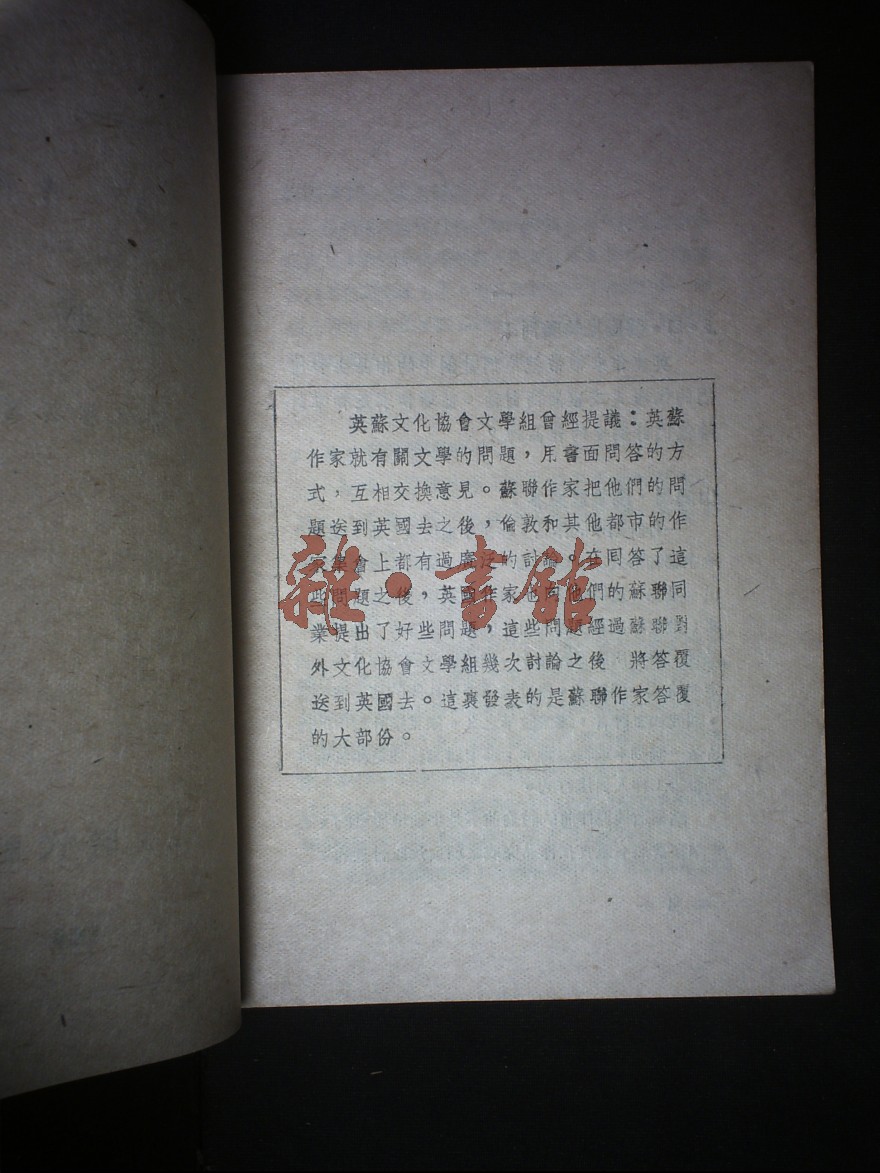 英蘇文化協會文學組曾經提議：英蘇
作家就有關文學的問題，用書面問答的方
式，互相交換意見。蘇聯作家把他們的問
題送到英國去之後，倫敦和其他都市的作
家集會上都有過廣泛的討論。在回答了這
些問題之後，英國作家也向他們的蘇聯同
業提出了好些問題，這些問題經過蘇聯對
外文化協會文學組幾次討論之後 將答覆
送到英國去。這裏發表的是蘇聯作家答覆
的大部份。
雜·書館